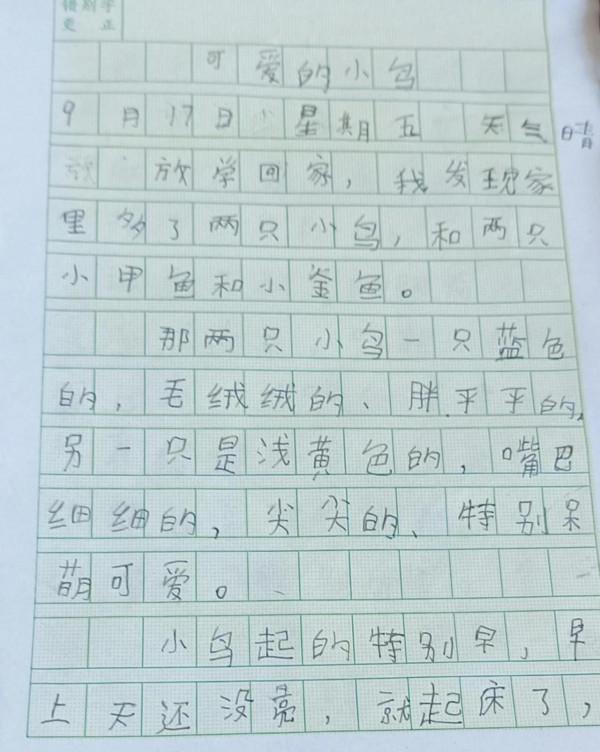 错别字
更 正
可爱的小鸟
9月17日 星期五 天气晴
放学回家，我发现家
里多了两只小鸟，和两只
小甲鱼和小金鱼。
那两只小鸟一只蓝色
的，毛绒绒的、胖平平的，
另一只是浅黄色的，嘴巴
细细的，尖尖的、特别呆
萌可爱。
小鸟起的特别早，早
上天还没亮，就起床了，